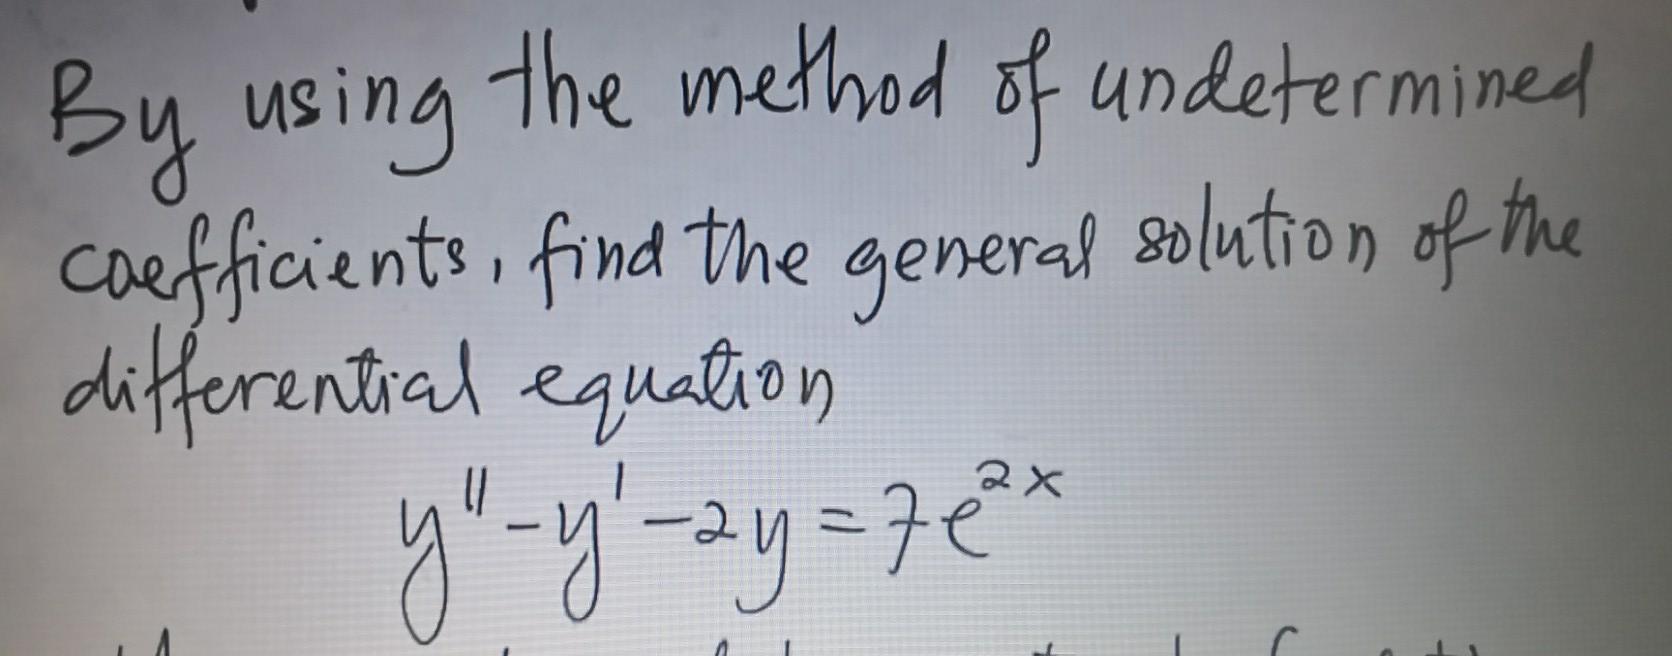 By using the method of undetermined
coefficients, find the general solution of the
differential equation
y'' - y' - 2y = 7e^{2x}